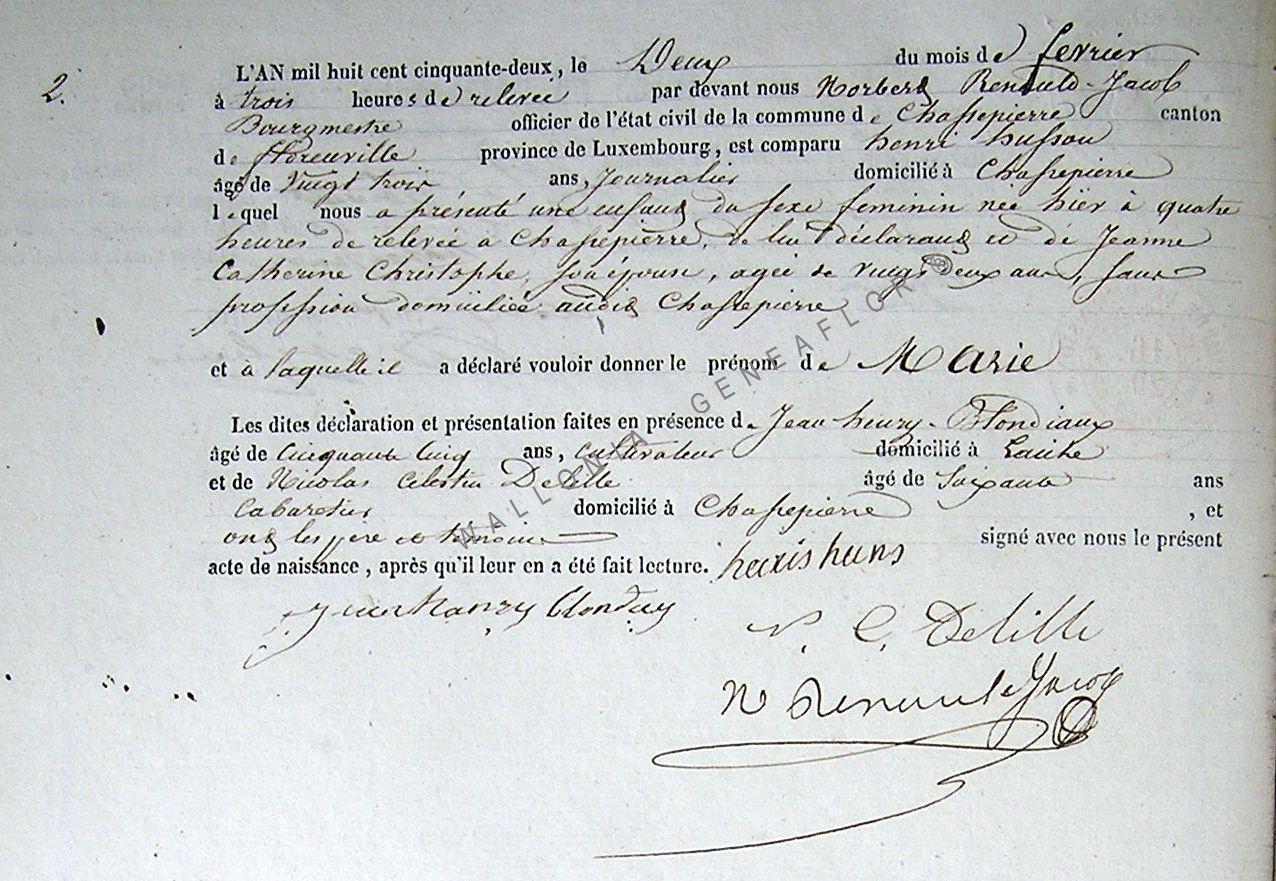 2.
L'AN mil huit cent cinquante-deux, le Deux du mois de fevrier
à trois heures de relevée par devant nous Norbert Renauld-Jacob
Bourgmestre officier de l'état civil de la commune de Chassepierre canton
de Florenville province de Luxembourg, est comparu henri husson
âgé de vingt trois ans, Journalier domicilié à Chassepierre
lequel nous a présenté une enfant du sexe feminin née hier à quatre
heures de relevée à Chassepierre, de lui déclarant et de Jeanne
Catherine Christophe, son épouse, agée de vingt deux ans, sans
profession domiciliée audit Chassepierre
et à laquelle il a déclaré vouloir donner le prénom de Marie
Les dites déclaration et présentation faites en présence de Jean henry Blondiaux
âgé de cinquante cinq ans, cultivateur domicilié à Laiche
et de Nicolas Celestin Delille âgé de soixante ans
Cabaretier domicilié à Chassepierre, et
ont les père et temoins signé avec nous le présent
acte de naissance, après qu'il leur en a été fait lecture.
N. C. Delille
N Renauld Jacob
WALLONIA GENEAFLOR